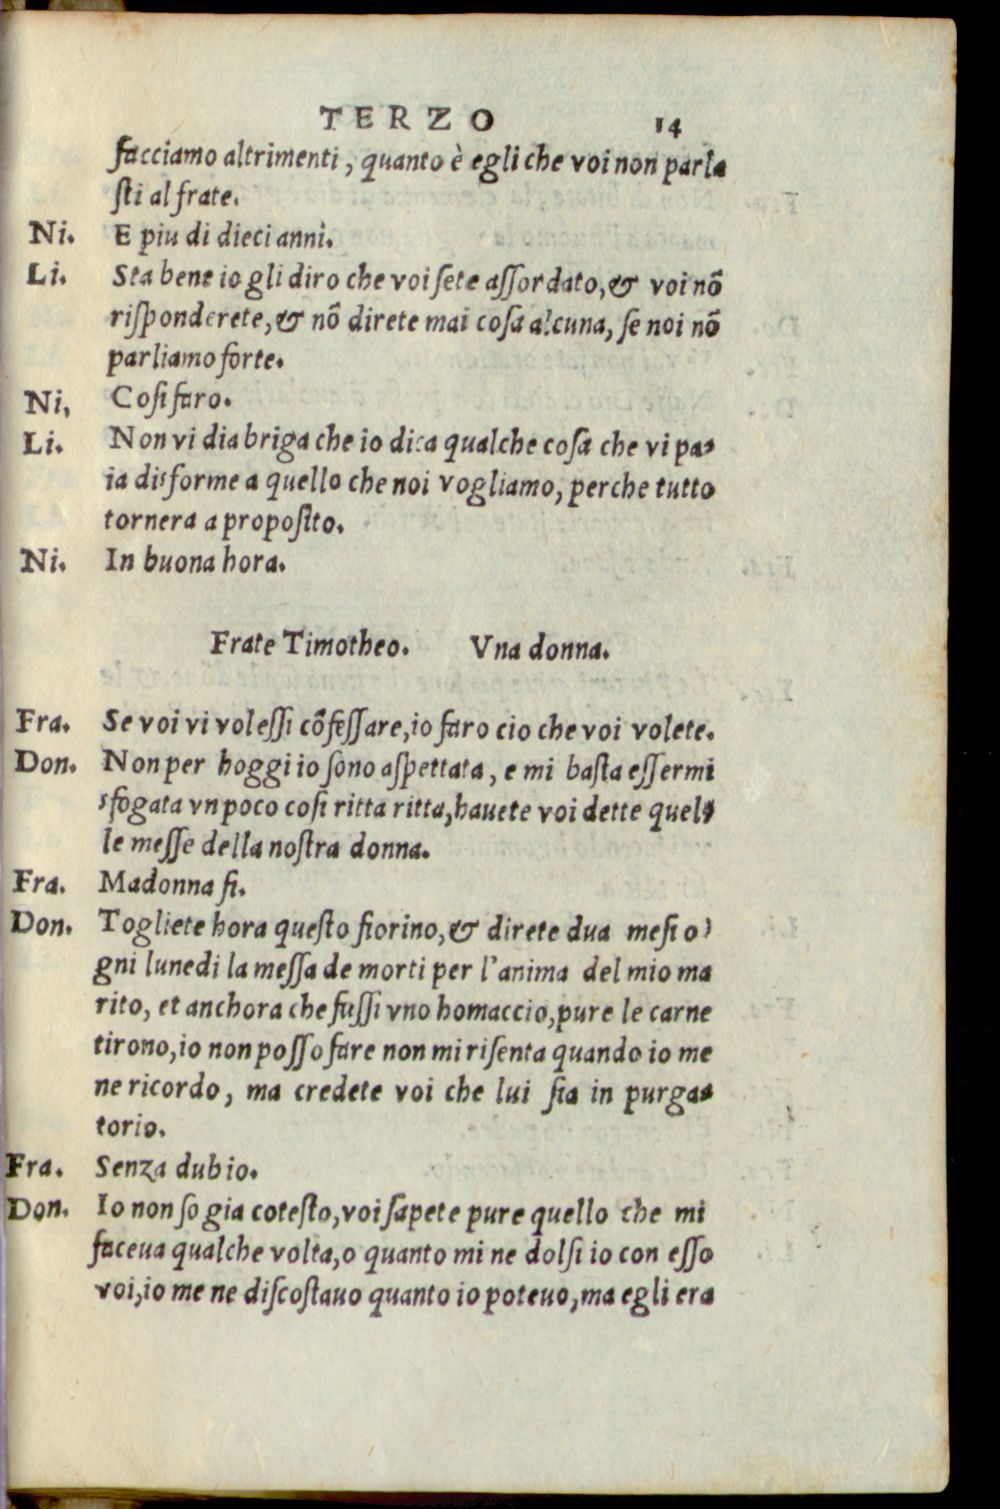 TERZO 14
facciamo altrimenti, quanto è egli che voi non parla
ſti al frate.
Ni. E piu di dieci anni.
Li. Sta bene io gli diro che voi ſete aſſordato, & voi nõ
riſponderete, & nõ direte mai coſa alcuna, ſe noi nõ
parliamo forte.
Ni, Coſi faro.
Li. Non vi dia briga che io dica qualche coſa che vi pa-
ia disforme a quello che noi vogliamo, perche tutto
tornera a propoſito.
Ni. In buona hora.
Frate Timotheo. Vna donna.
Fra. Se voi vi voleſſi cõfeſſare, io faro cio che voi volete.
Don. Non per hoggi io ſono aſpettata, e mi baſta eſſermi
sfogata vn poco coſi ritta ritta, hauete voi dette quel-
le meſſe della noſtra donna.
Fra. Madonna ſi.
Don. Togliete hora queſto fiorino, & direte dua meſi o)
gni lunedi la meſſa de morti per l'anima del mio ma
rito, et anchora che fuſſi vno homaccio, pure le carne
tirono, io non poſſo fare non mi riſenta quando io me
ne ricordo, ma credete voi che lui ſia in purga-
torio.
Fra. Senza dubio.
Don. Io non ſo gia coteſto, voi ſapete pure quello che mi
faceua qualche volta, o quanto mi ne dolſi io con eſſo
voi, io me ne diſcoſtauo quanto io poteuo, ma egli era